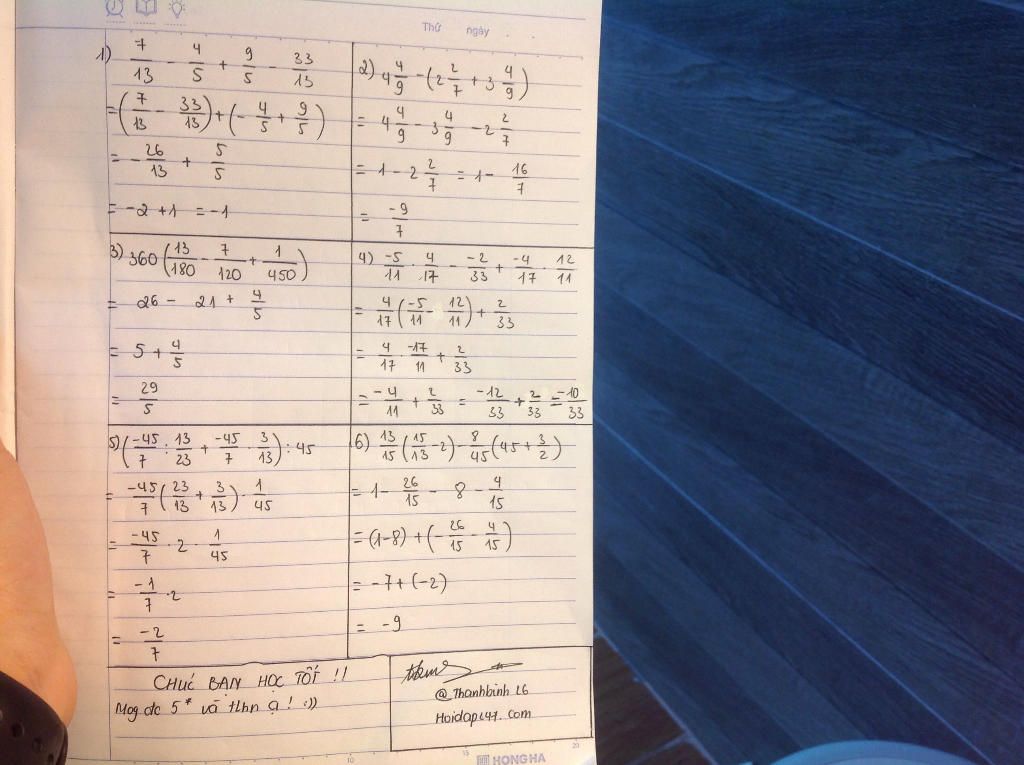 Thứ ngày . .
1) 7/13 - 4/5 + 9/5 - 33/13
= (7/13 - 33/13) + (- 4/5 + 9/5)
= - 26/13 + 5/5
= -2 + 1 = -1
2) 4 4/9 - (2 2/7 + 3 4/9)
= 4 4/9 - 3 4/9 - 2 2/7
= 1 - 2 2/7 = 1 - 16/7
= -9/7
3) 360 (13/180 - 7/120 + 1/450)
= 26 - 21 + 4/5
= 5 + 4/5
= 29/5
4) -5/11 . 4/17 - -2/33 + -4/17 . 12/11
= 4/17 (-5/11 - 12/11) + 2/33
= 4/17 . -17/11 + 2/33
= -4/11 + 2/33 = -12/33 + 2/33 = -10/33
5) (-45/7 : 13/23 + -45/7 . 3/13) : 45
= -45/7 (23/13 + 3/13) . 1/45
= -45/7 . 2 . 1/45
= -1/7 . 2
= -2/7
6) 13/15 (15/13 - 2) - 8/45 (45 + 3/2)
= 1 - 26/15 - 8 - 4/15
= (1-8) + (- 26/15 - 4/15)
= -7 + (-2)
= -9
CHÚC BẠN HỌC TỐT !!
Mog đc 5* và tlhn ạ! :))
@Thanhbinh26
Hoidap247.com
10 15 20
HONG HA